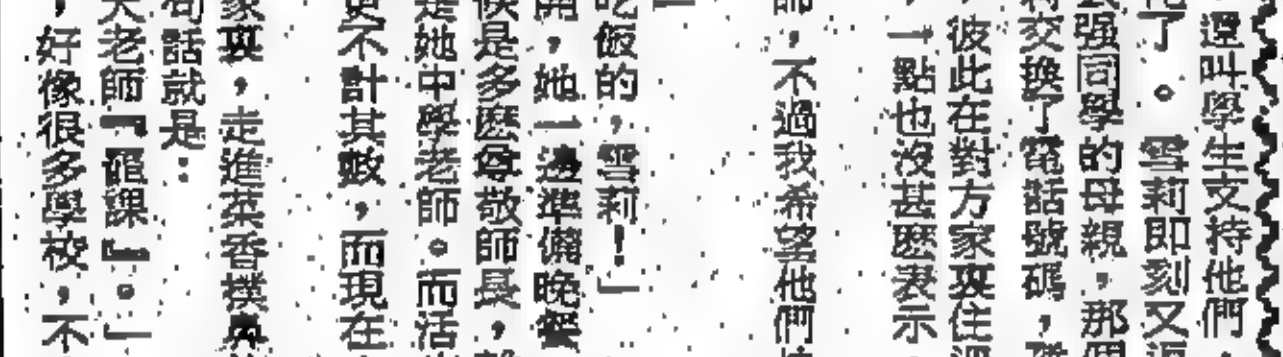 還叫學生支持他們。
了。雪莉即刻又
强同學的母親,那個
交換了電話號碼,
彼此在對方家裏住
,一點也沒甚麽表示
師,不過我希望他們
吃飯的,雪莉!」
開,她一邊準備晚餐
候是多麽尊敬師長,
是她中學老師。而活
更不計其數,而現在
家裏,走進菜香撲鼻
句話就是:
老師『罷課』。」
,好像很多學校,不